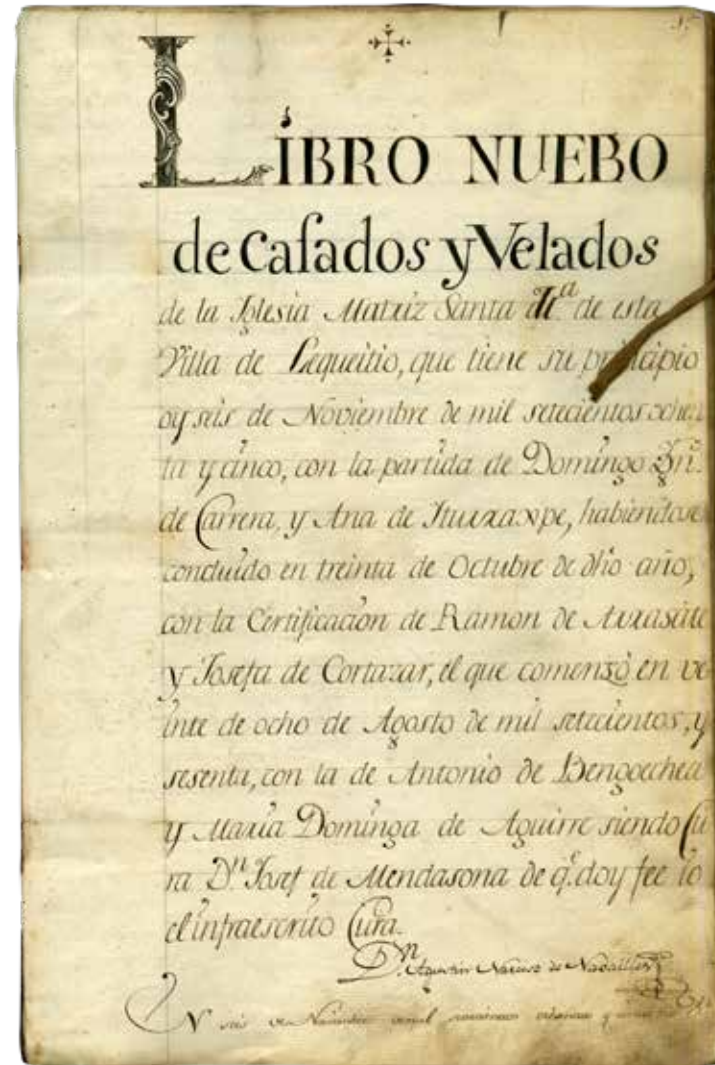 LIBRO NUEBO
de Casados y Velados
de la Iglesia Matriz Santa Mª de esta
Villa de Lequeitio, que tiene su principio
oy seis de Noviembre de mil setecientos ochen
ta y cinco, con la partida de Domingo
de Carrera, y Ana de Iturraxpe, habiendose
concluido en treinta de Octubre de dho año,
con la Certificacion de Ramon de
y Josefa de Cortazar, el que comenzò en ve
inte de ocho de Agosto de mil setecientos, y
sesenta, con la de Antonio de Bengoechea
y Maria Dominga de Aguirre siendo Cu
ra Dn Josef de Mendasona de qe doy fee Io
el infraescrito Cura.
Dn Agustin Narciso de
N seis de Noviembre de mil setecientos ochenta y